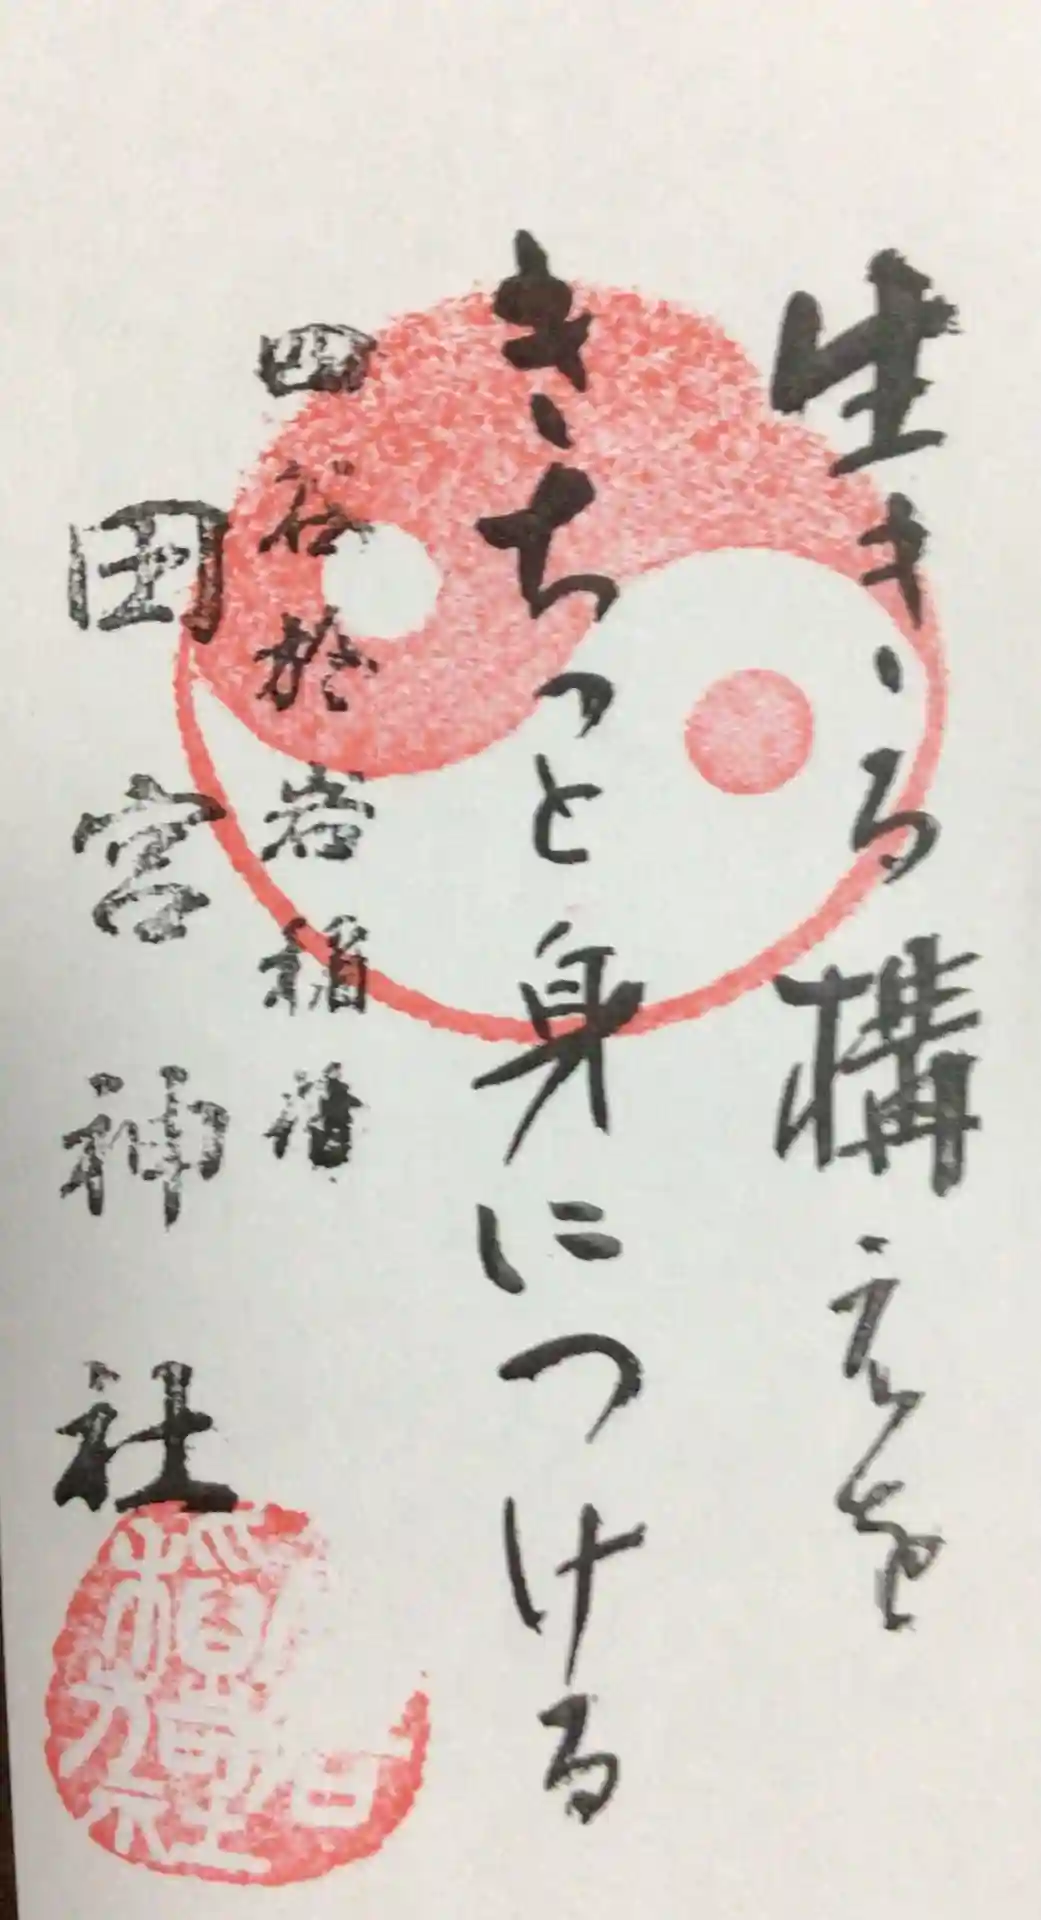 生きる構えを
きちっと身につける
四谷於岩稲荷
田宮神社